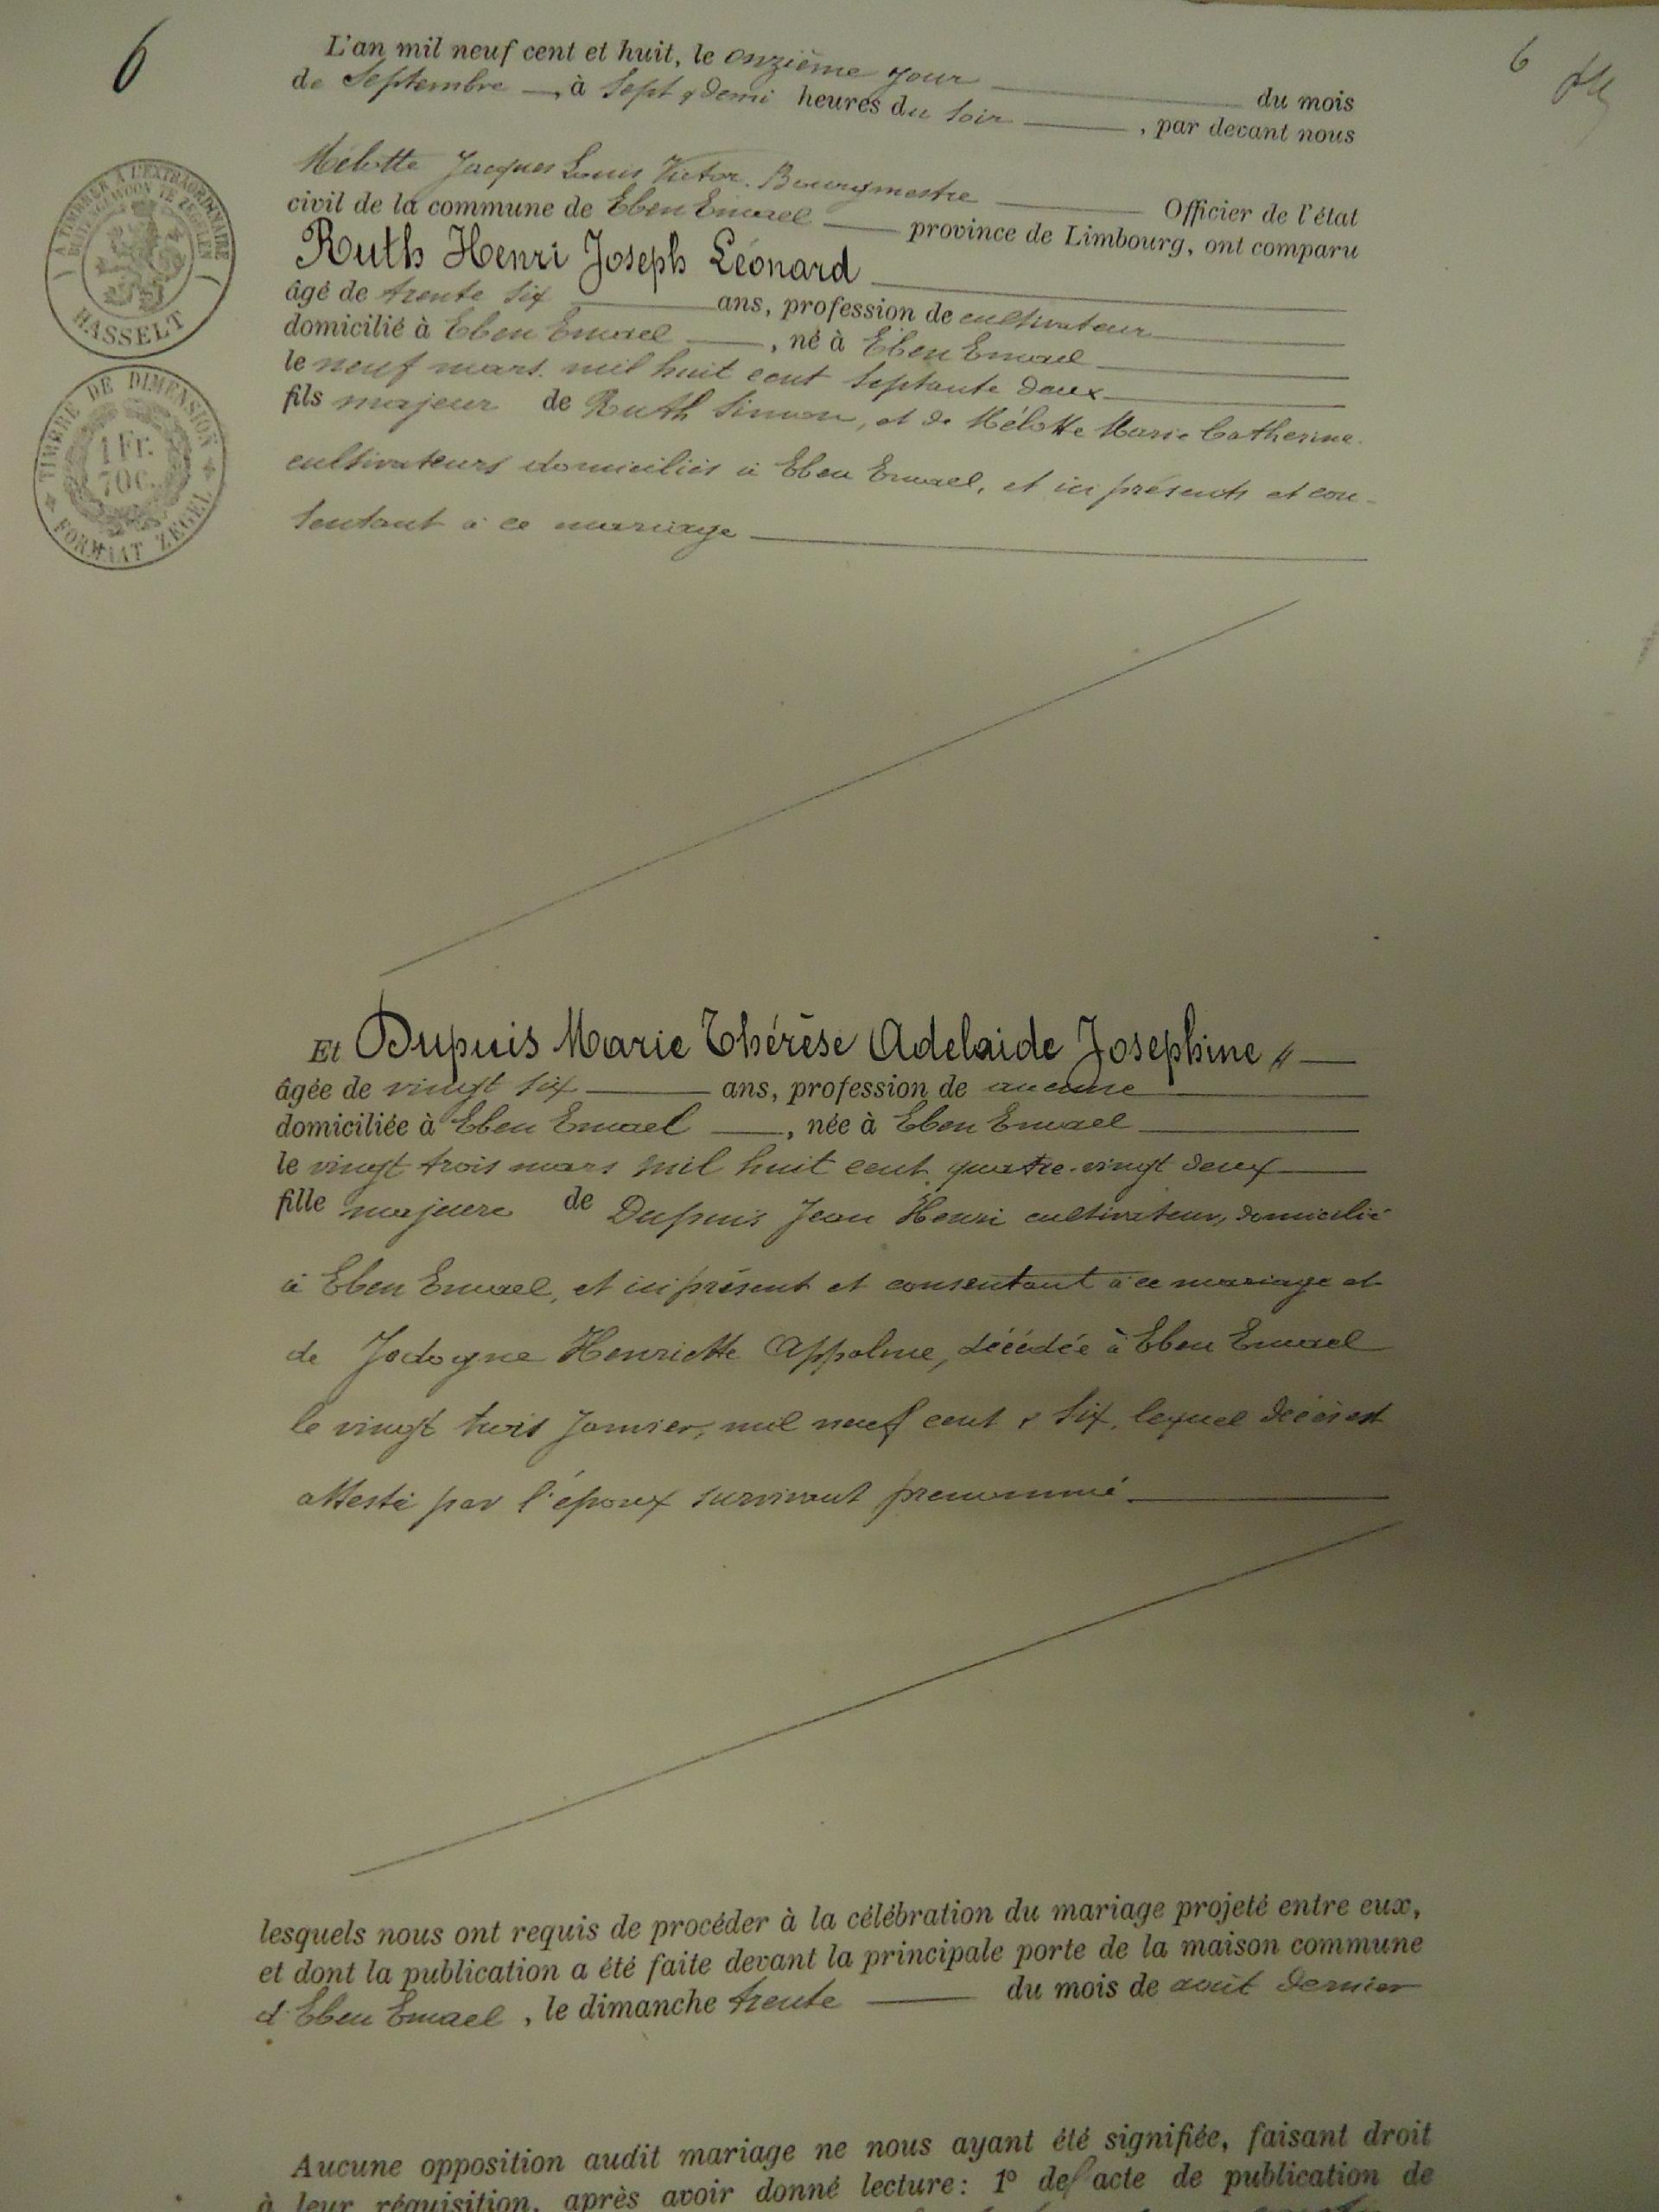 6
6
L'an mil neuf cent et huit, le onzième jour du mois
de Septembre, à Sept & demi heures du soir, par devant nous
Mélotte Jacques Louis Victor. Bourgmestre Officier de l'état
civil de la commune de Eben Emael province de Limbourg, ont comparu
Ruth Henri Joseph Léonard
âgé de trente six ans, profession de cultivateur
domicilié à Eben Emael, né à Eben Emael
le neuf mars. mil huit cent septante deux
fils majeur de Ruth Simon, et de Mélotte Marie Catherine.
cultivateurs domiciliés à Eben Emael, et ici présents et con-
sentant à ce mariage
A TIMBRER A L'EXTRAORDINAIRE
BUITENGEWOON TE ZEGELEN
HASSELT
TIMBRE DE DIMENSION
1 Fr.
70 c.
FORMAAT ZEGEL
Et Dupuis Marie Thérèse Adelaide Josephine
âgée de vingt six ans, profession de aucune
domiciliée à Eben Emael, née à Eben Emael
le vingt trois mars mil huit cent quatre-vingt deux
fille majeure de Dupuis Jean Henri cultivateur, domicilié
à Eben Emael, et ici présent et consentant à ce mariage et
de Jodogne Henriette Appoline, décédée à Eben Emael
le vingt trois Janvier, mil neuf cent & six, lequel décès est
attesté par l'époux survivant prénommé
lesquels nous ont requis de procéder à la célébration du mariage projeté entre eux,
et dont la publication a été faite devant la principale porte de la maison commune
d'Eben Emael, le dimanche trente du mois de août dernier
Aucune opposition audit mariage ne nous ayant été signifiée, faisant droit
à leur réquisition, après avoir donné lecture: 1º de l'acte de publication de